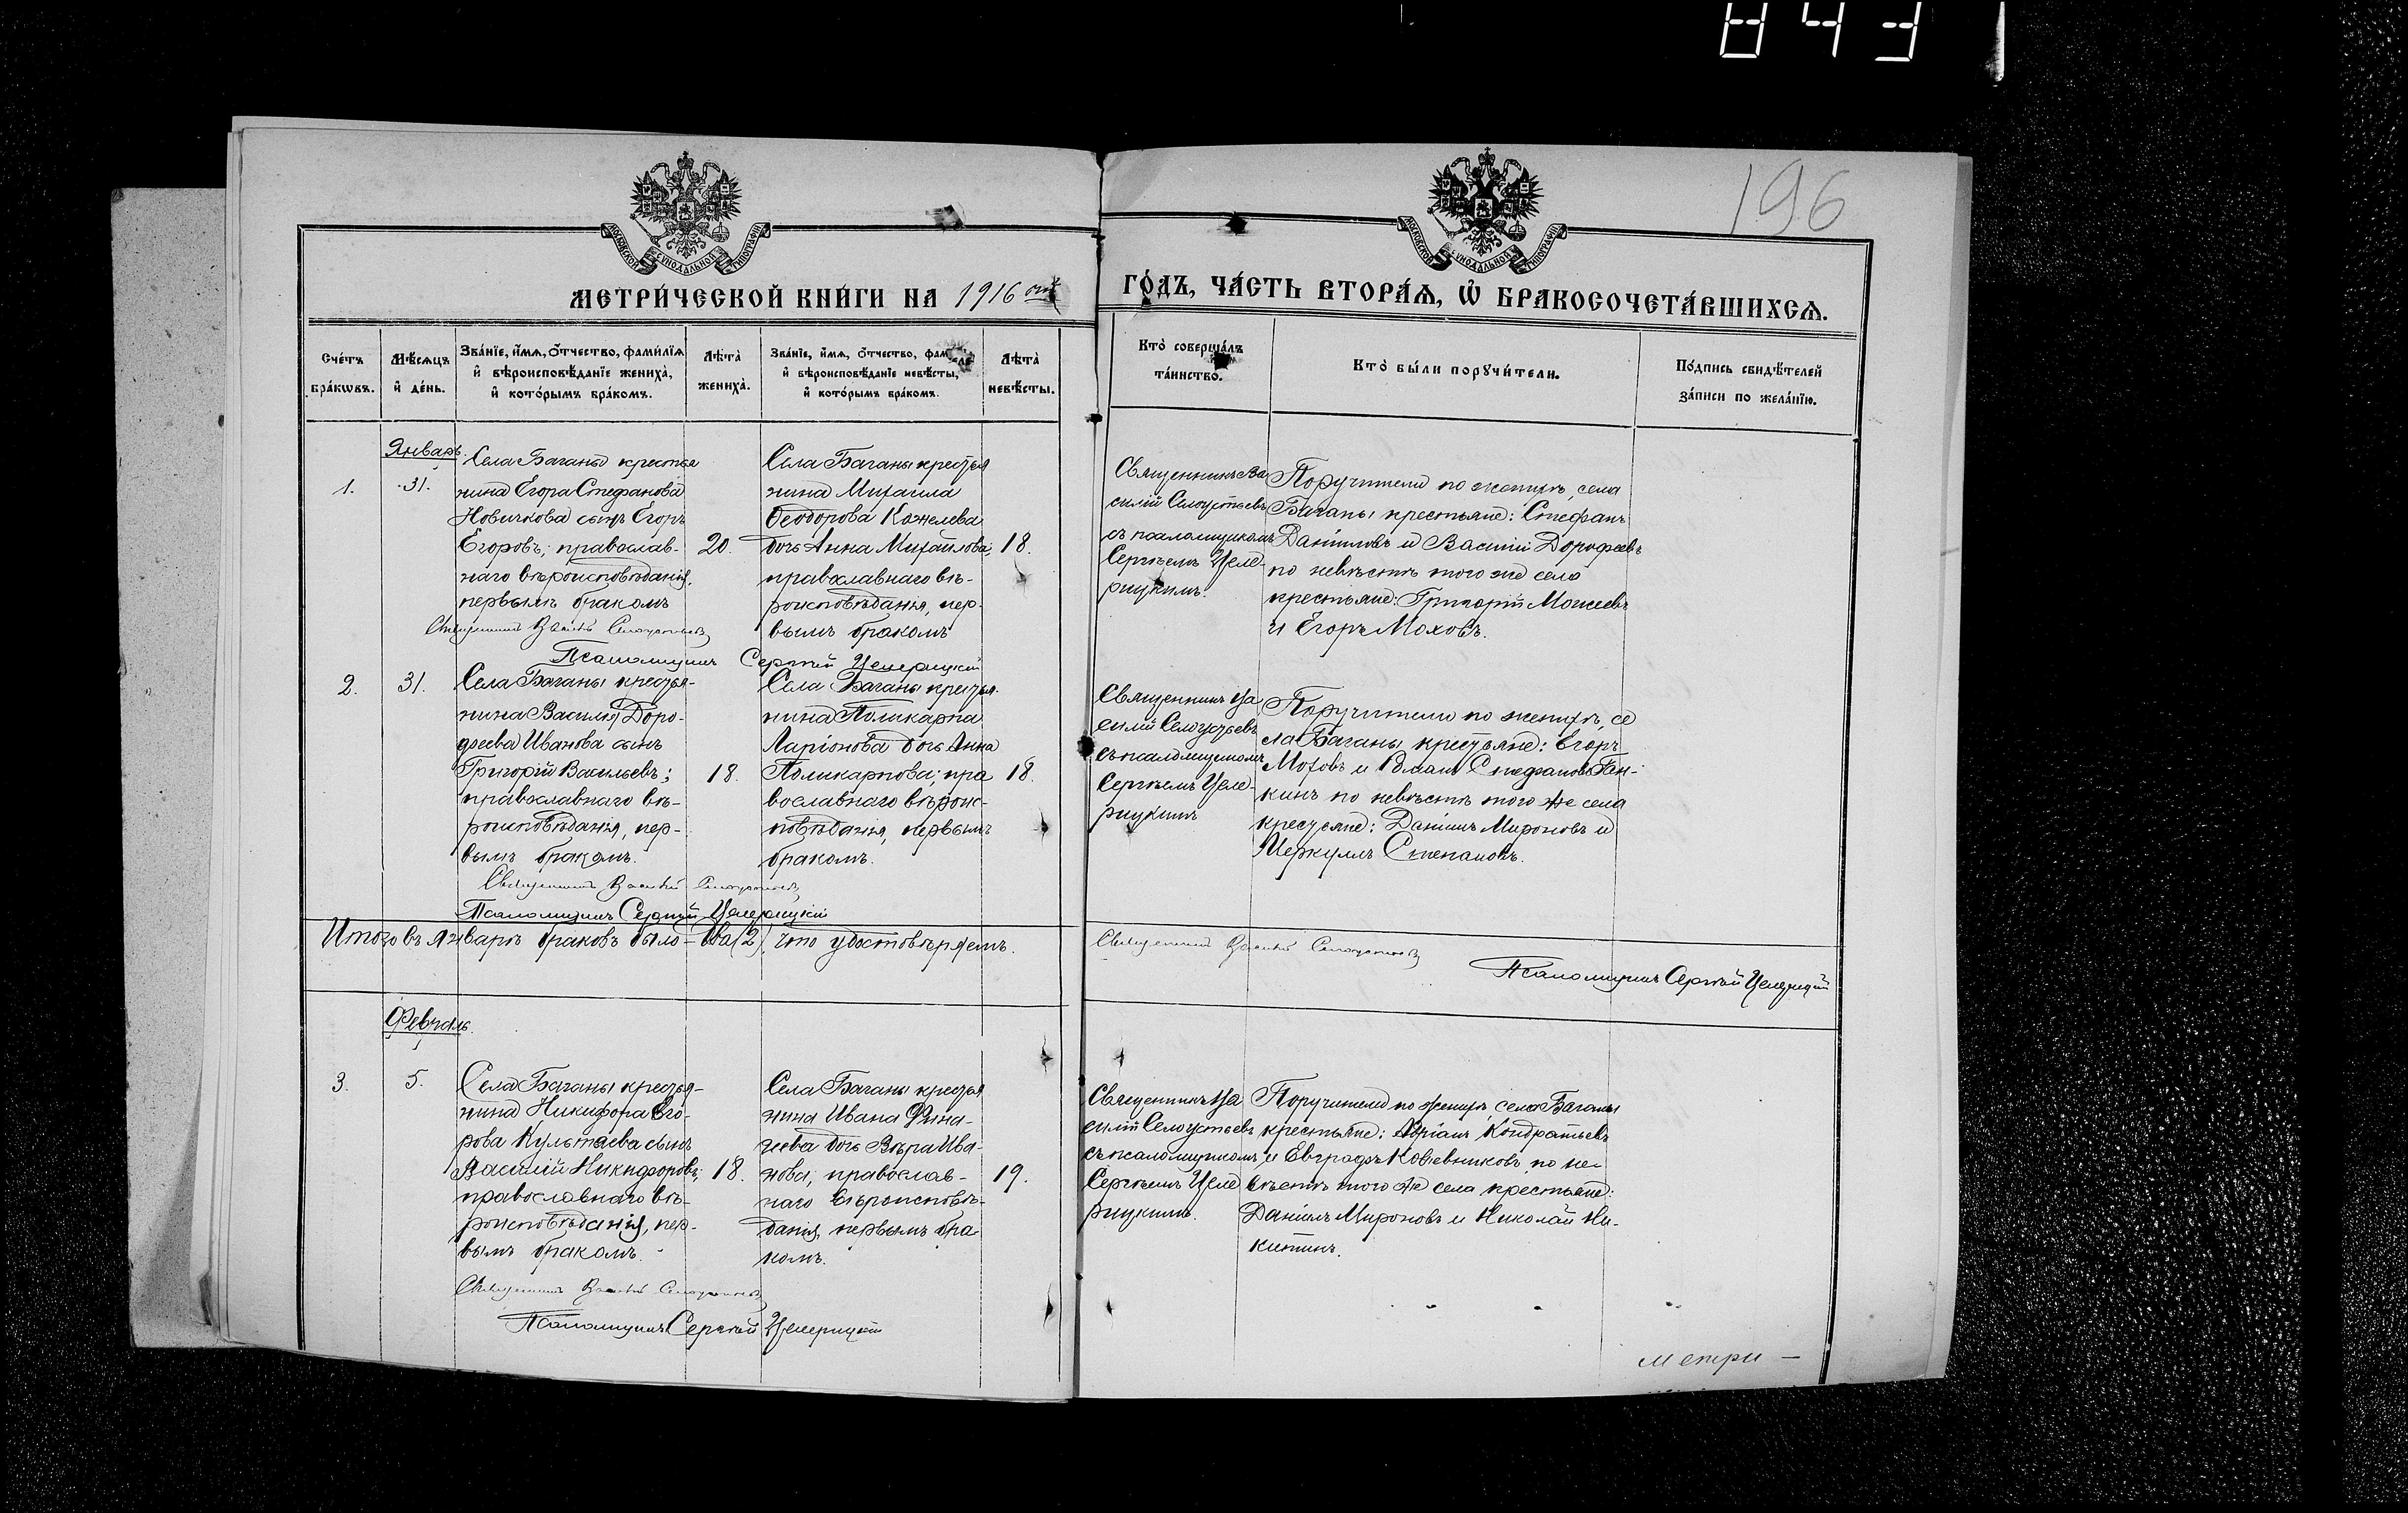 843
196
МОСКОВСКОЙ СѴНОДАЛЬНОЙ ТИПОГРАФІИ
МОСКОВСКОЙ СѴНОДАЛЬНОЙ ТИПОГРАФІИ
МЕТРИ́ЧЕСКОЙ КНИ́ГИ НА 1916 ой
ГО́ДЪ, ЧА́СТЬ ВТОРА́Ѧ, Ѽ БРАКОСОЧЕТА́ВШИХСѦ.
Сче́тъ
бра́кѡвъ.
Мѣ́сѧцъ
и҆ де́нь.
Зва́нїе, и҆́мѧ, ѻ҆́тчество, фами́лїѧ
и҆ вѣроисповѣ́данїе жениха̀,
и҆ кото́рымъ бра́комъ.
Лѣта̀
жениха̀.
Зва́нїе, и҆́мѧ, ѻ҆́тчество,
и҆ вѣроисповѣ́данїе невѣ́сты,
и҆ кото́рымъ бра́комъ.
Лѣта̀
невѣ́сты.
Кто̀ соверша́лъ
та́инство.
Кто̀ бы́ли порꙋчи́тели.
По́дпись свидѣ́телей
за́писи по жела́нїю.
Январь.
1.
31.
Села Баганы крестья
нина Егора Стефанова
Новичкова сынъ Егоръ
Егоровъ; православ-
наго вѣроисповѣданія,
первымъ бракомъ
20.
Села Баганы крестья
нина Михаила
Ѳеодорова Кожелева
дочь Анна Михайлова,
православнаго вѣ-
роисповѣданія, пер-
вымъ бракомъ
18.
Священникъ Ва
силій Селоустьевъ
съ псаломщикомъ
Сергѣемъ Целе-
рицкимъ.
Поручители по женихѣ, села
Баганы крестьяне: Стефанъ
Даниловъ и Василій Дорофеевъ
по невѣстѣ того же села
крестьяне: Григорій Моисеевъ
и Егоръ Моховъ.
Священникъ Василій Селоустьевъ
Псаломщикъ Сергѣй Целерицкій
2.
31.
Села Баганы крестья-
нина Василія Доро-
феева Иванова сынъ
Григорій Васильевъ;
православнаго вѣ-
роисповѣданія, пер-
вымъ бракомъ.
18.
Села Баганы крестья-
нина Поликарпа
Ларіонова дочь Анна
Поликарпова; пра
вославнаго вѣроис-
повѣданія, первымъ
бракомъ.
18.
Священникъ Ва
силій Селоустьевъ
съ псаломщикомъ
Сергѣемъ Целе-
рицкимъ
Поручители по женихѣ, се
ла Баганы крестьяне: Егоръ
Моховъ и Романъ Стефановъ Ган-
кинъ по невѣстѣ того же села
крестьяне: Даніилъ Мироновъ и
Меркулъ Степановъ.
Священникъ Василій Селоустьевъ
Псаломщикъ Сергѣй Целерицкій
Итого въ январѣ браковъ было - два (2), что удостовѣряемъ.
Священникъ Василій Селоустьевъ
Псаломщикъ Сергѣй Целерицкій
Февраль.
3.
5.
Села Баганы крестья-
нина Никифора Его-
рова Культяева сынъ
Василій Никифоровъ;
православнаго вѣ-
роисповѣданія, пер-
вымъ бракомъ.
18.
Села Баганы крестья
нина Ивана Фина-
геева дочь Вѣра Ива-
нова; православ-
наго вѣроисповѣ-
данія, первымъ бра
комъ.
19.
Священникъ Ва
силій Селоустьевъ
съ псаломщикомъ
Сергѣемъ Целе
рицкимъ.
Поручители по женихѣ, села Баганы
крестьяне: Адріанъ Кондратьевъ
и Евграфъ Кожевниковъ, по не-
вѣстѣ того же села крестьяне:
Даніилъ Мироновъ и Николай Ни-
китинъ.
Священникъ Василій Селоустьевъ
Псаломщикъ Сергѣй Целерицкій
метри -